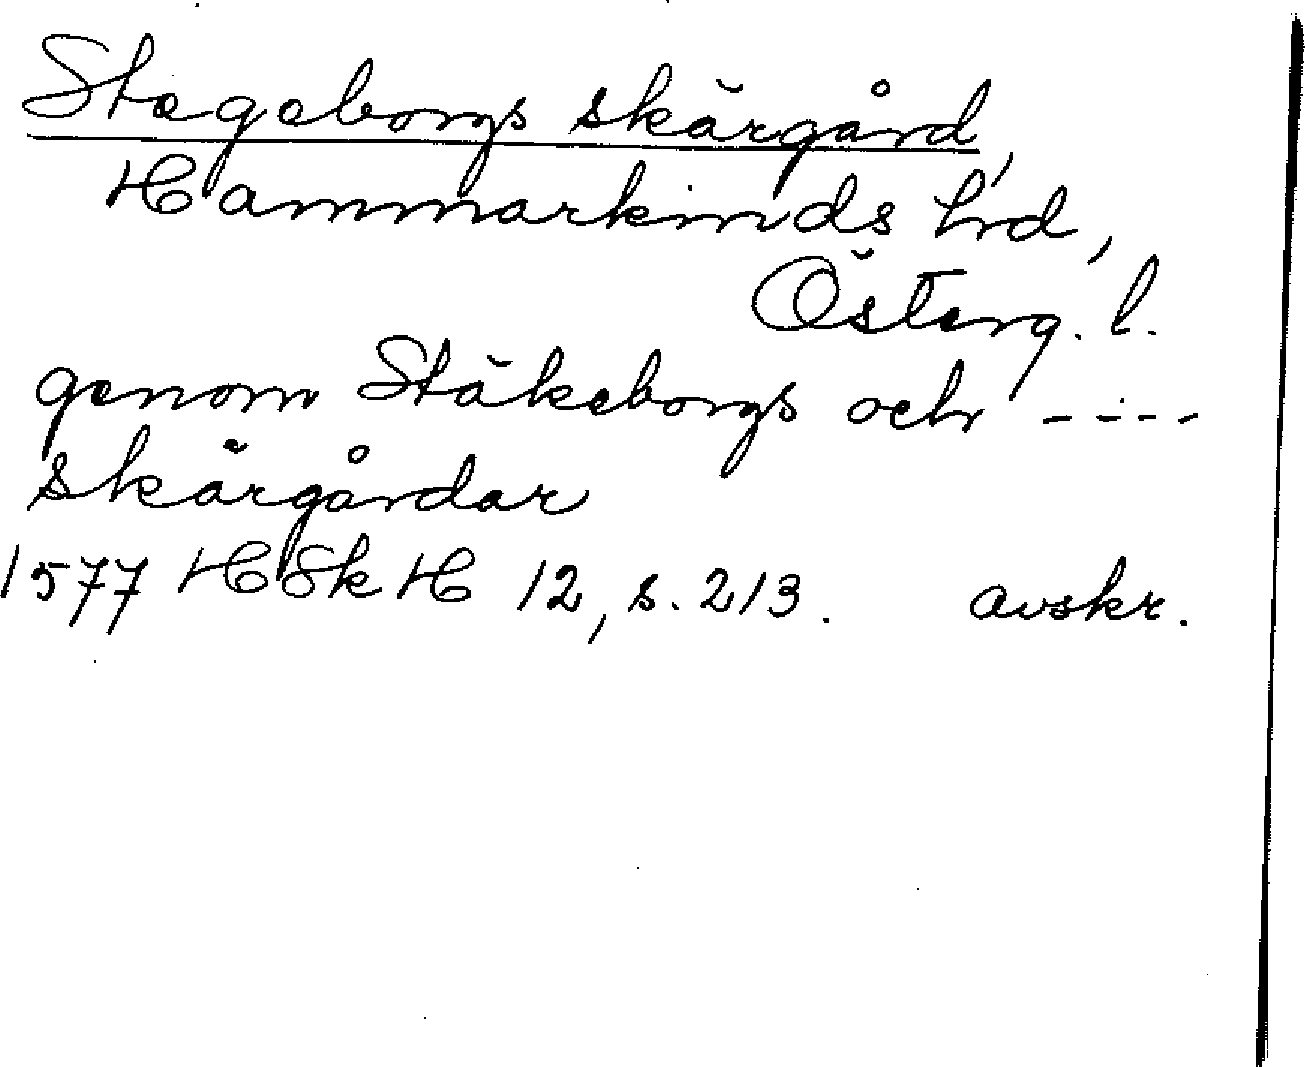 Stegeborgs skärgård,
Hammarkinds hd,
Österg. l.
genom Stäkeborgs och ----
skärgårdar
1577 HSkH 12, s. 213. avskr.